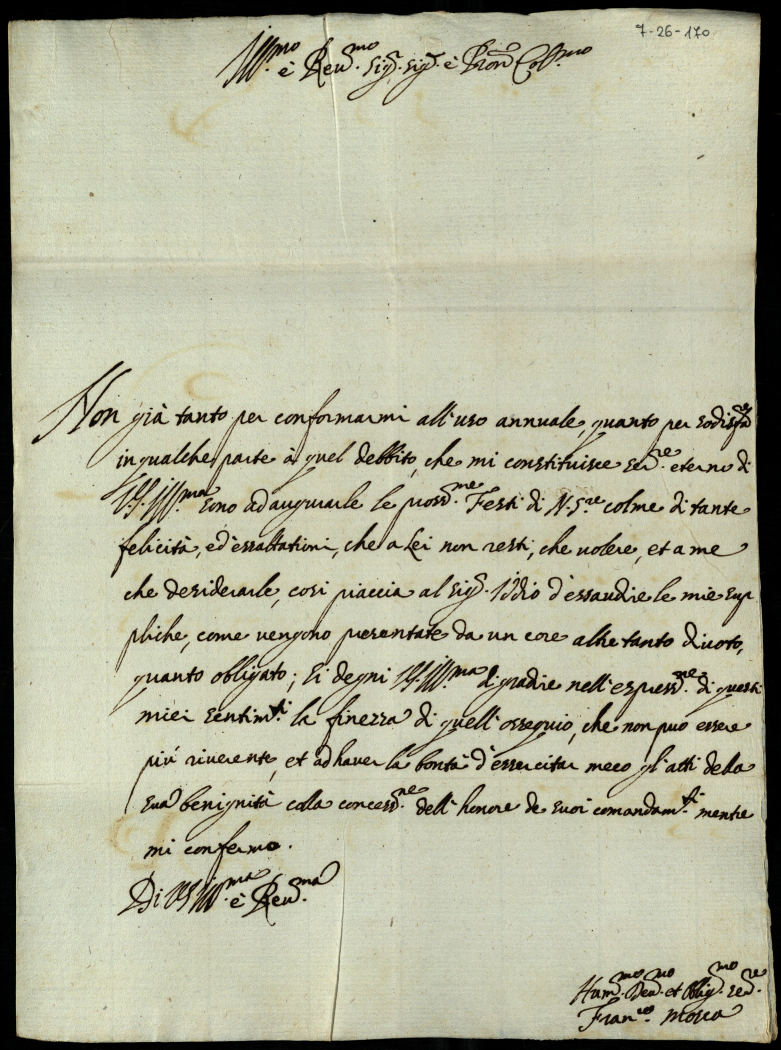 7-26-170
Ill.mo è Reu.mo Sig.r Sig.r è Pron Col.mo
Non già tanto per conformarmi all'uso annuale, quanto per sodisfare
in qualche parte à quel debbito, che mi constituisce ser.re eterno di
V.S. Ill.ma sono ad augurarle le pross.me Festi di N. S.re colme di tante
felicità, ed'essaltationi, che a Lei non resti, che uolere, et a me
che desiderarle, cosi piaccia al Sig.r Iddio d'essaudire le mie sup
pliche, come vengono presentate da un core altre tanto diuoto,
quanto obligato; Si degni V.S. Ill.ma di gradire nell'espress.ne di questi
miei sentim.ti la finezza di quell'ossequio, che non può essere
più riuerente, et ad hauer la bontà d'essercitar meco gl'atti della
sua benignità colla concess.ne dell'honore de suoi comandam.ti mentre
mi confermo.
Di V.S. Ill.ma è Reu.ma
Hum.mo Deu.mo et Oblig.mo ser.re
Fran.co